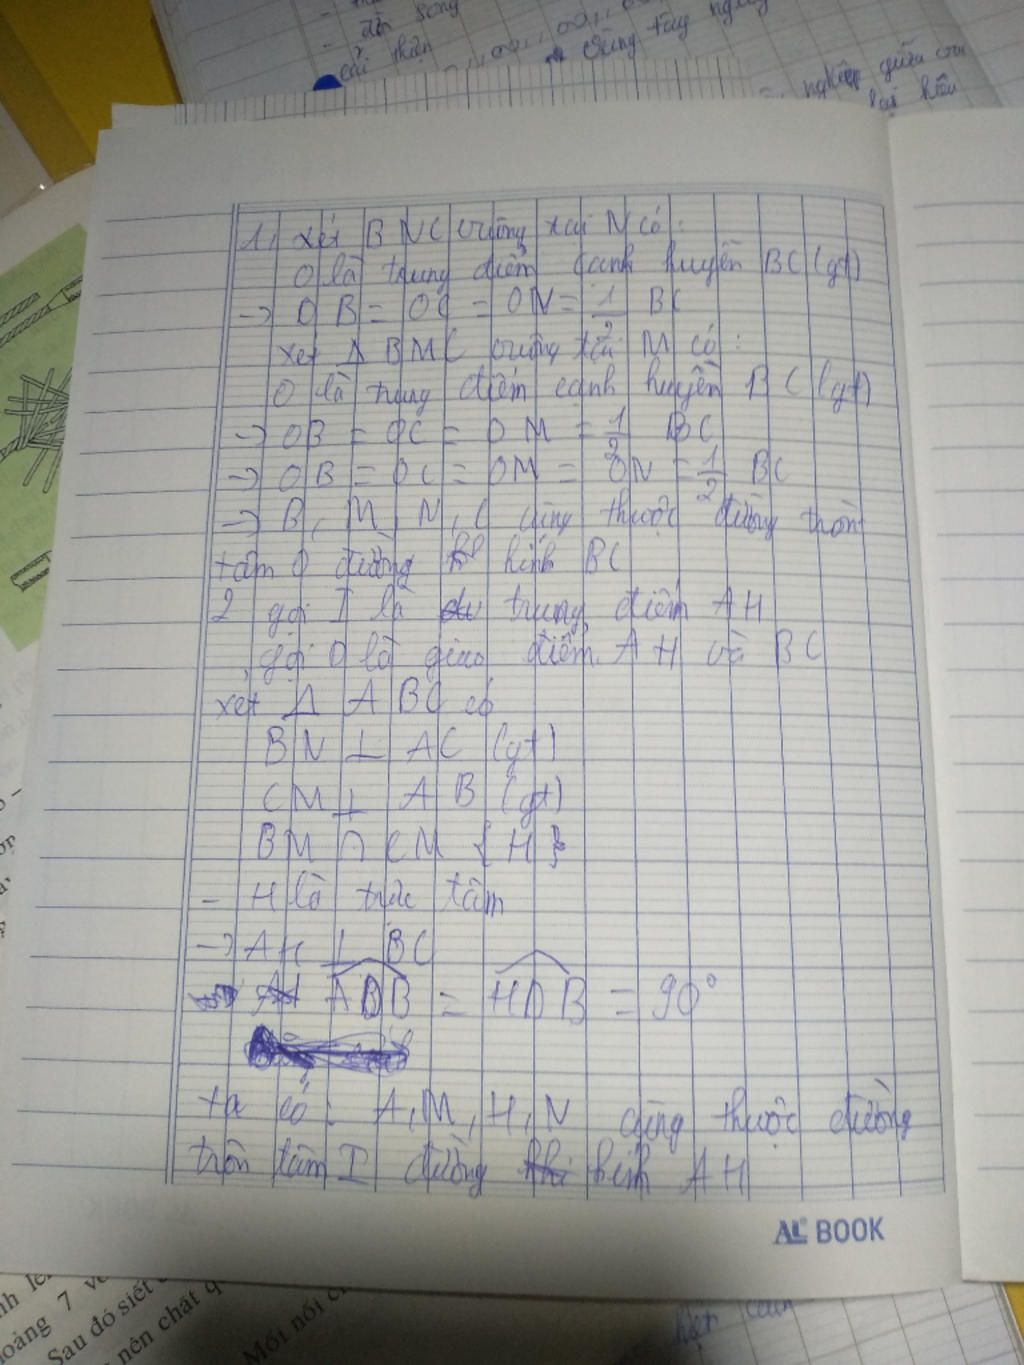 - đời sống
cải thiện
cùng tay
nghiệp giữa
1, xét BNC vuông tại N có:
O là trung điểm cạnh huyền BC (gt)
-> OB = OC = ON = 1/2 BC
xét Δ BMC vuông tại M có:
O là trung điểm cạnh huyền BC (gt)
-> OB = OC = OM = 1/2 BC
-> OB = OC = OM = ON = 1/2 BC
-> B, M, N, C cùng thuộc đường tròn
tâm O đường kính BC
2 gọi I là trung điểm AH
gọi D là giao điểm AH và BC
xét Δ ABC có
BN ⊥ AC (gt)
CM ⊥ AB (gt)
BM ∩ CM {H}
- H là trực tâm
-> AH ⊥ BC
ADB = HDB = 90°
ta có: A, M, H, N cùng thuộc đường
tròn tâm I đường kính AH
AL BOOK
oảng 7
Sau đó siết
nên chặt
Mối nối